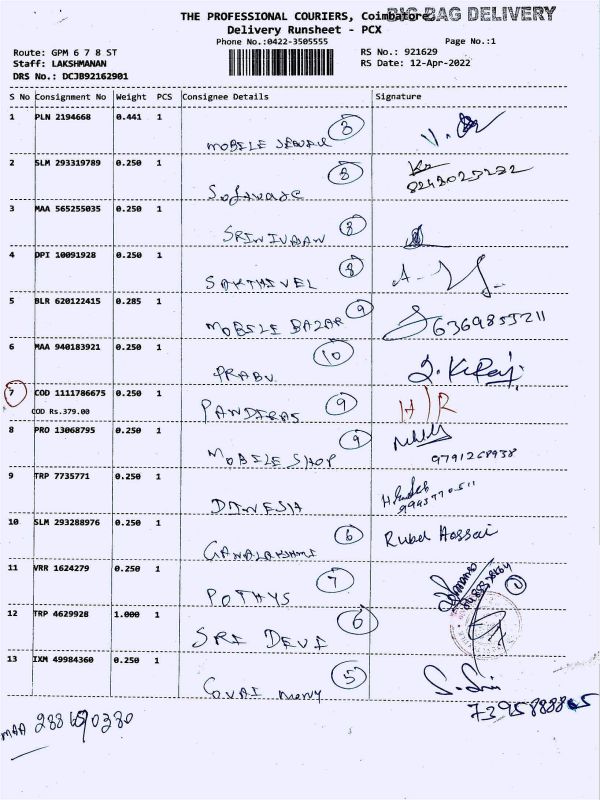 THE PROFESSIONAL COURIERS, Coimbatore
BIG BAG DELIVERY
Delivery Runsheet - PCX
Phone No.:0422-3505555 Page No.:1
Route: GPM 6 7 8 ST RS No.: 921629
Staff: LAKSHMANAN RS Date: 12-Apr-2022
DRS No.: DCJB92162901
S No Consignment No Weight PCS Consignee Details Signature
1 PLN 2194668 0.441 1 3
MOBILE
2 SLM 293319789 0.250 1 8
Software
3 MAA 565255035 0.250 1 8
SRINIVASAN
4 DPI 10091928 0.250 1 8
SAKTHIVEL
5 BLR 620122415 0.285 1 9
MOBILE BAZAR 6369855211
6 MAA 940183921 0.250 1 10
PRABU
7 COD 1111786675 0.250 1 9 H/R
COD Rs.379.00
8 PRO 13068795 0.250 1 9
MOBILE SHOP
9 TRP 7735771 0.250 1
DINESH
10 SLM 293288976 0.250 1 6 Rubel Hossai
GANALAKSHMI
11 VRR 1624279 0.250 1 7
POTHYS
12 TRP 4629928 1.000 1 6
SRI DEVI
13 IXM 49984360 0.250 1 5
Covai
MAA